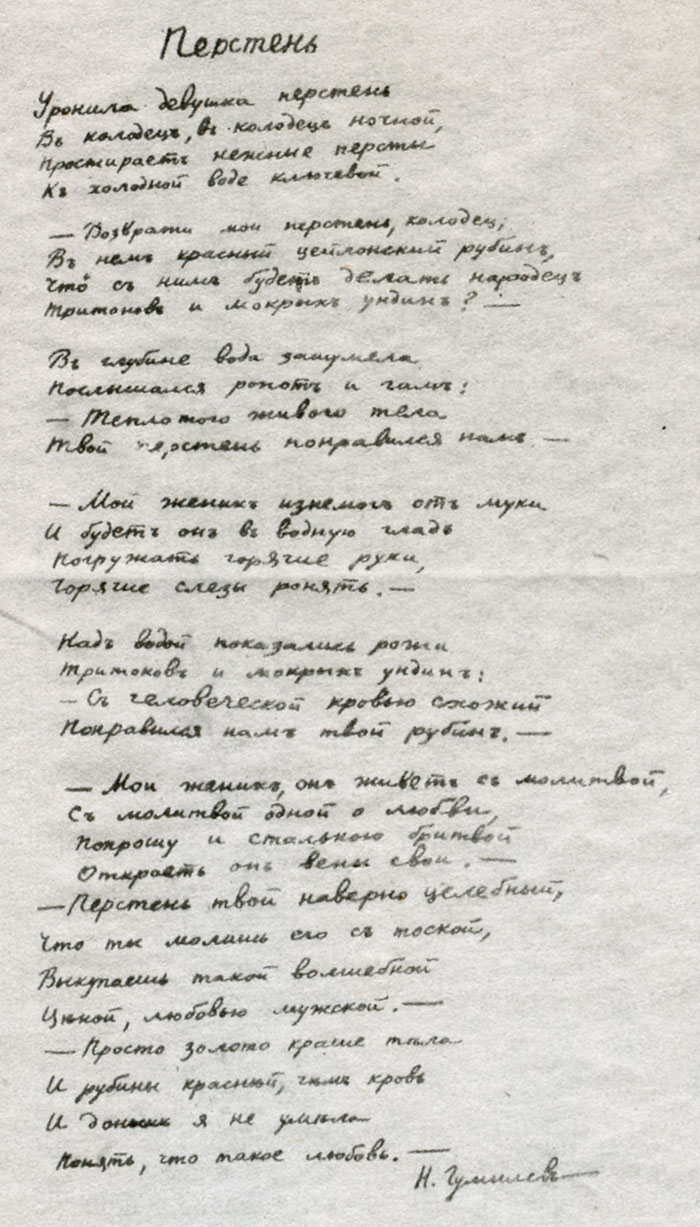 Перстень
Уронила девушка перстень
Въ колодецъ, въ колодецъ ночной,
Простираетъ нежные персты
Къ холодной воде ключевой.
— Возврати мой перстень, колодец,
Въ немъ красный цейлонский рубинъ,
Что съ нимъ будетъ делать народецъ
Тритоновъ и мокрыхъ ундинъ? —
Въ глубине вода зашумела
Послышался ропотъ и гамъ:
— Теплотою живого тела
Твой перстень понравился намъ. —
— Мой женихъ изнемогъ отъ муки
И будетъ онъ въ водную гладь
Погружать горячие руки,
Горячие слезы ронять. —
Надъ водой показались рожи
Тритоновъ и мокрыхъ ундинъ:
— Съ человеческой кровью схожий
Понравился намъ твой рубинъ. —
— Мой женихъ, онъ живетъ съ молитвой,
Съ молитвой одной о любви,
Попрошу и стальною бритвой
Откроетъ онъ вены свои. —
— Перстень твой наверно целебный,
Что ты молишь его съ тоской,
Выкупаешь такой волшебной
Цѣной, любовью мужской. —
— Просто золото краше тѣла
И рубины красный, чѣмъ кровь
И донынѣ я не умѣла
Понять, что такое любовь. —
Н. Гумилевъ